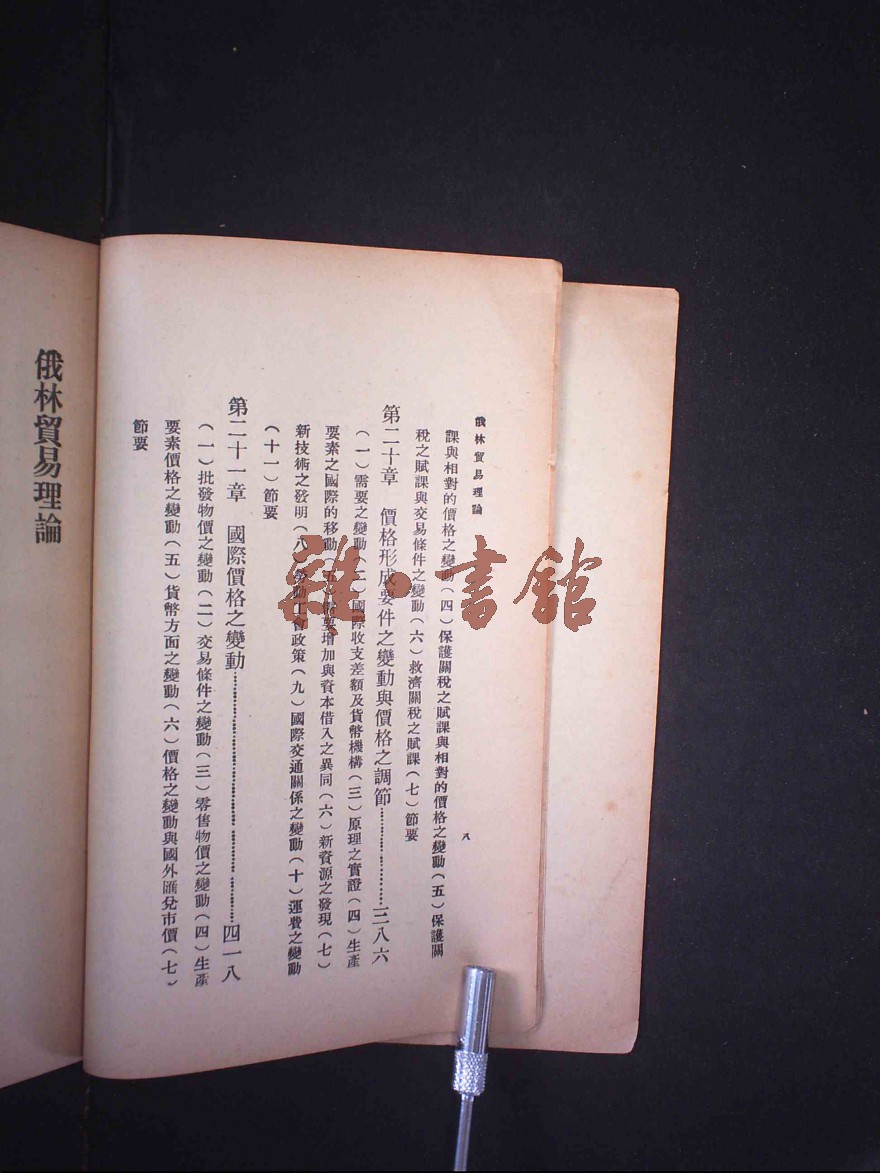 俄林貿易理論
八
課與相對的價格之變動(四)保護關稅之賦課與相對的價格之變動(五)保護關
稅之賦課與交易條件之變動(六)救濟關稅之賦課(七)節要
第二十章　價格形成要件之變動與價格之調節…………三八六
(一)需要之變動(二)國際收支差額及貨幣機構(三)原理之實證(四)生產
要素之國際的移動(五)需要增加與資本借入之異同(六)新資源之發現(七)
新技術之發明(八)勞動工會政策(九)國際交通關係之變動(十)運費之變動
(十一)節要
第二十一章　國際價格之變動…………四一八
(一)批發物價之變動(二)交易條件之變動(三)零售物價之變動(四)生產
要素價格之變動(五)貨幣方面之變動(六)價格之變動與國外匯兌市價(七)
節要
俄林貿易理論
雜·書館